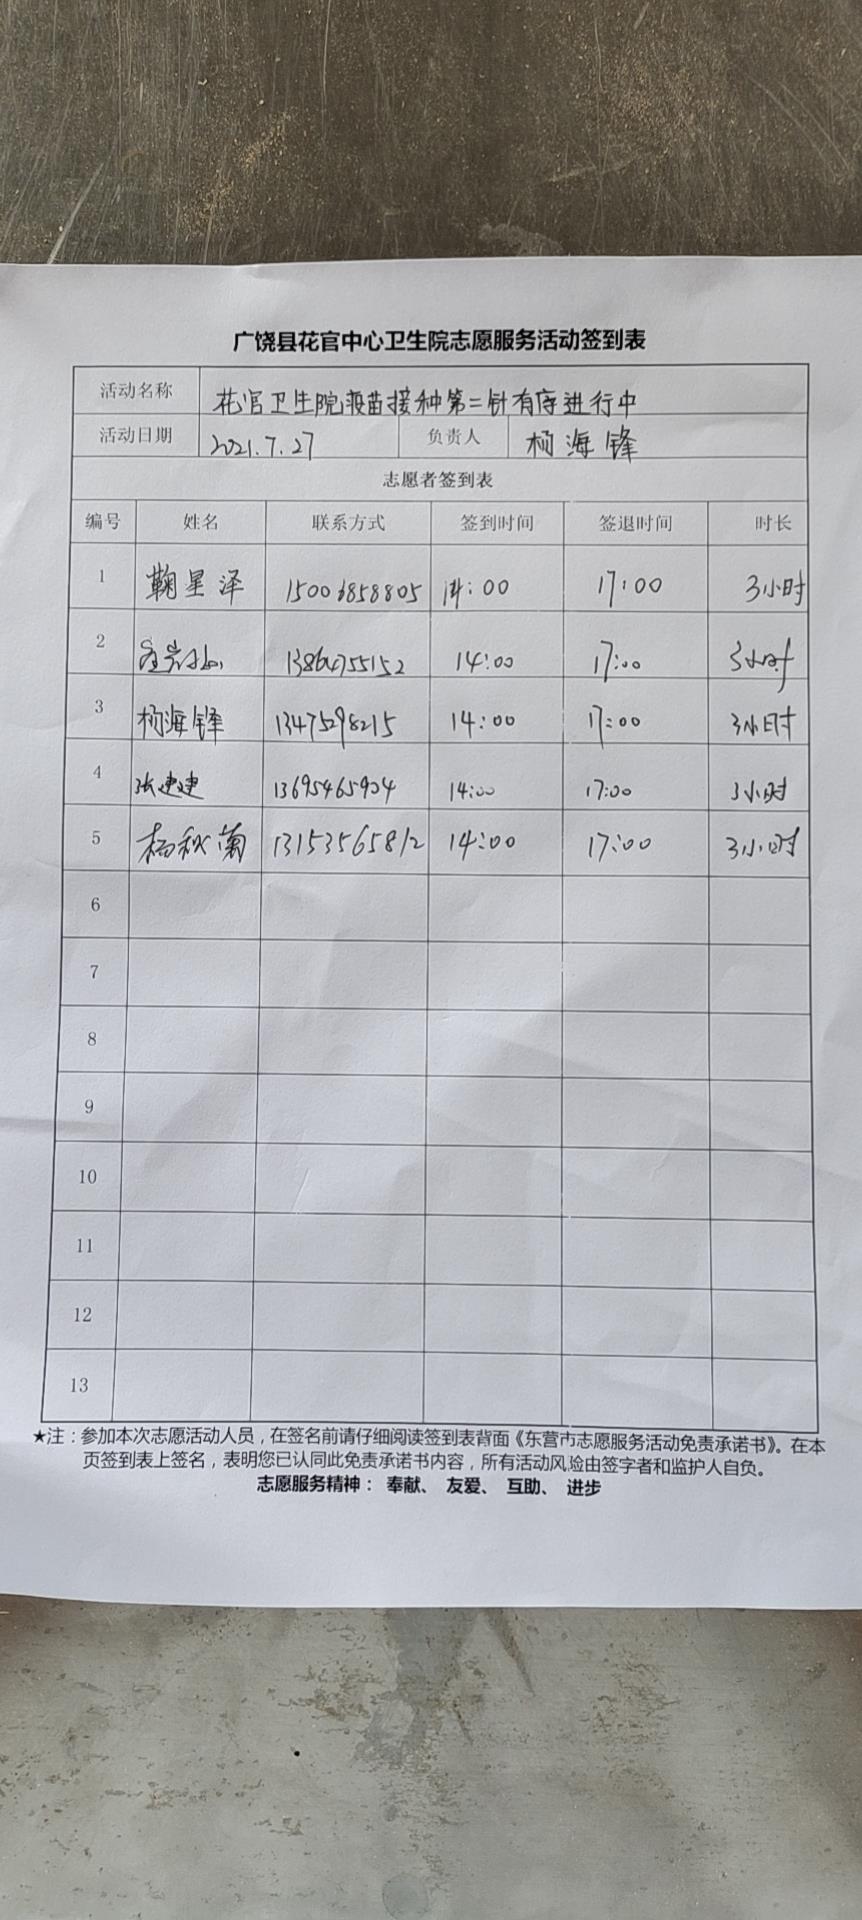 广饶县花官中心卫生院志愿服务活动签到表
活动名称 花官卫生院疫苗接种第二针有序进行中
活动日期 2021.7.27 负责人 杨海锋
志愿者签到表
编号 姓名 联系方式 签到时间 签退时间 时长
1 鞠星泽 15006858805 14:00 17:00 3小时
2 13864755152 14:00 17:00 3小时
3 杨海锋 13475298215 14:00 17:00 3小时
4 张建建 13695465904 14:00 17:00 3小时
5 杨秋菊 13153565812 14:00 17:00 3小时
6
7
8
9
10
11
12
13
★注：参加本次志愿活动人员，在签名前请仔细阅读签到表背面《东营市志愿服务活动免责承诺书》。在本
页签到表上签名，表明您已认同此免责承诺书内容，所有活动风险由签字者和监护人自负。
志愿服务精神： 奉献、 友爱、 互助、 进步